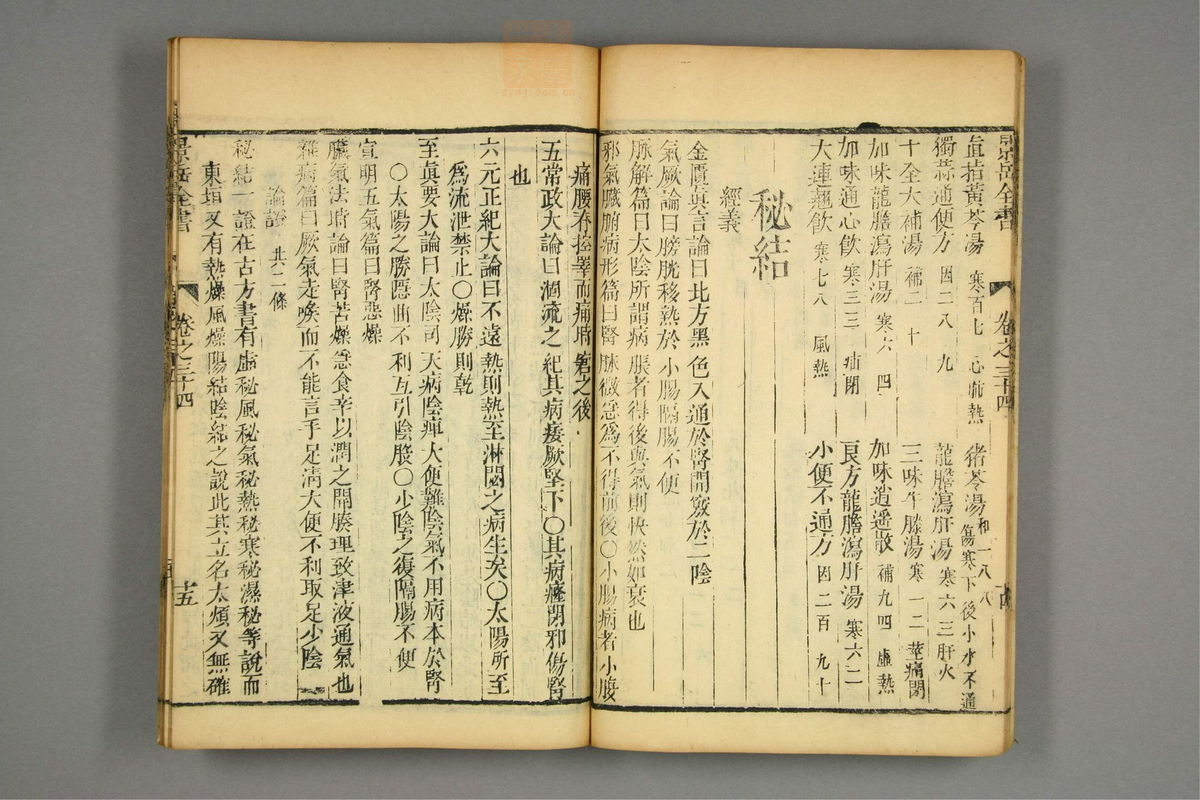 景岳全書 卷之三十四
眞指黃芩湯 寒百七 心肺熱 猪苓湯 和一八八 傷寒下後小水不通
獨蒜通便方 因二八九 龍膽瀉肝湯 寒六三 肝火
十全大補湯 補二十 三味牛膝湯 寒一二 莖痛閉
加味龍膽瀉肝湯 寒六四 加味逍遙散 補九四 虛熱
加味通心飲 寒三三 疝閉 良方龍膽瀉肝湯 寒六二
大連翹飲 寒七八 風熱 小便不通方 因二百九十
秘結
經義
金匱眞言論曰北方黑色入通於腎開竅於二陰
氣厥論曰膀胱移熱於小腸隔腸不便
脉解篇曰太陰所謂病脹者得後與氣則快然如衰也
邪氣臟腑病形篇曰腎脉微急爲不得前後〇小腸病者小腹
痛腰脊控睪而痛時窘之後
五常政大論曰涸流之紀其病痿厥堅下〇其病癃閉邪傷腎
也
六元正紀大論曰不遠熱則熱至淋閟之病生矣〇太陽所至
爲流泄禁止〇燥勝則乾
至眞要大論曰太陰司天病陰痺大便難陰氣不用病本於腎
〇太陽之勝隱曲不利互引陰股〇少陰之復隔腸不便
宣明五氣篇曰腎惡燥
臟氣法時論曰腎苦燥急食辛以潤之開腠理致津液通氣也
雜病篇曰厥氣走喉而不能言手足淸大便不利取足少陰
論證 共二條
秘結一證在古方書有虛秘風秘氣秘熱秘寒秘濕秘等說而
東垣又有熱燥風燥陽結陰結之說此其立名太煩又無確
景岳全書 卷之三十四 十五